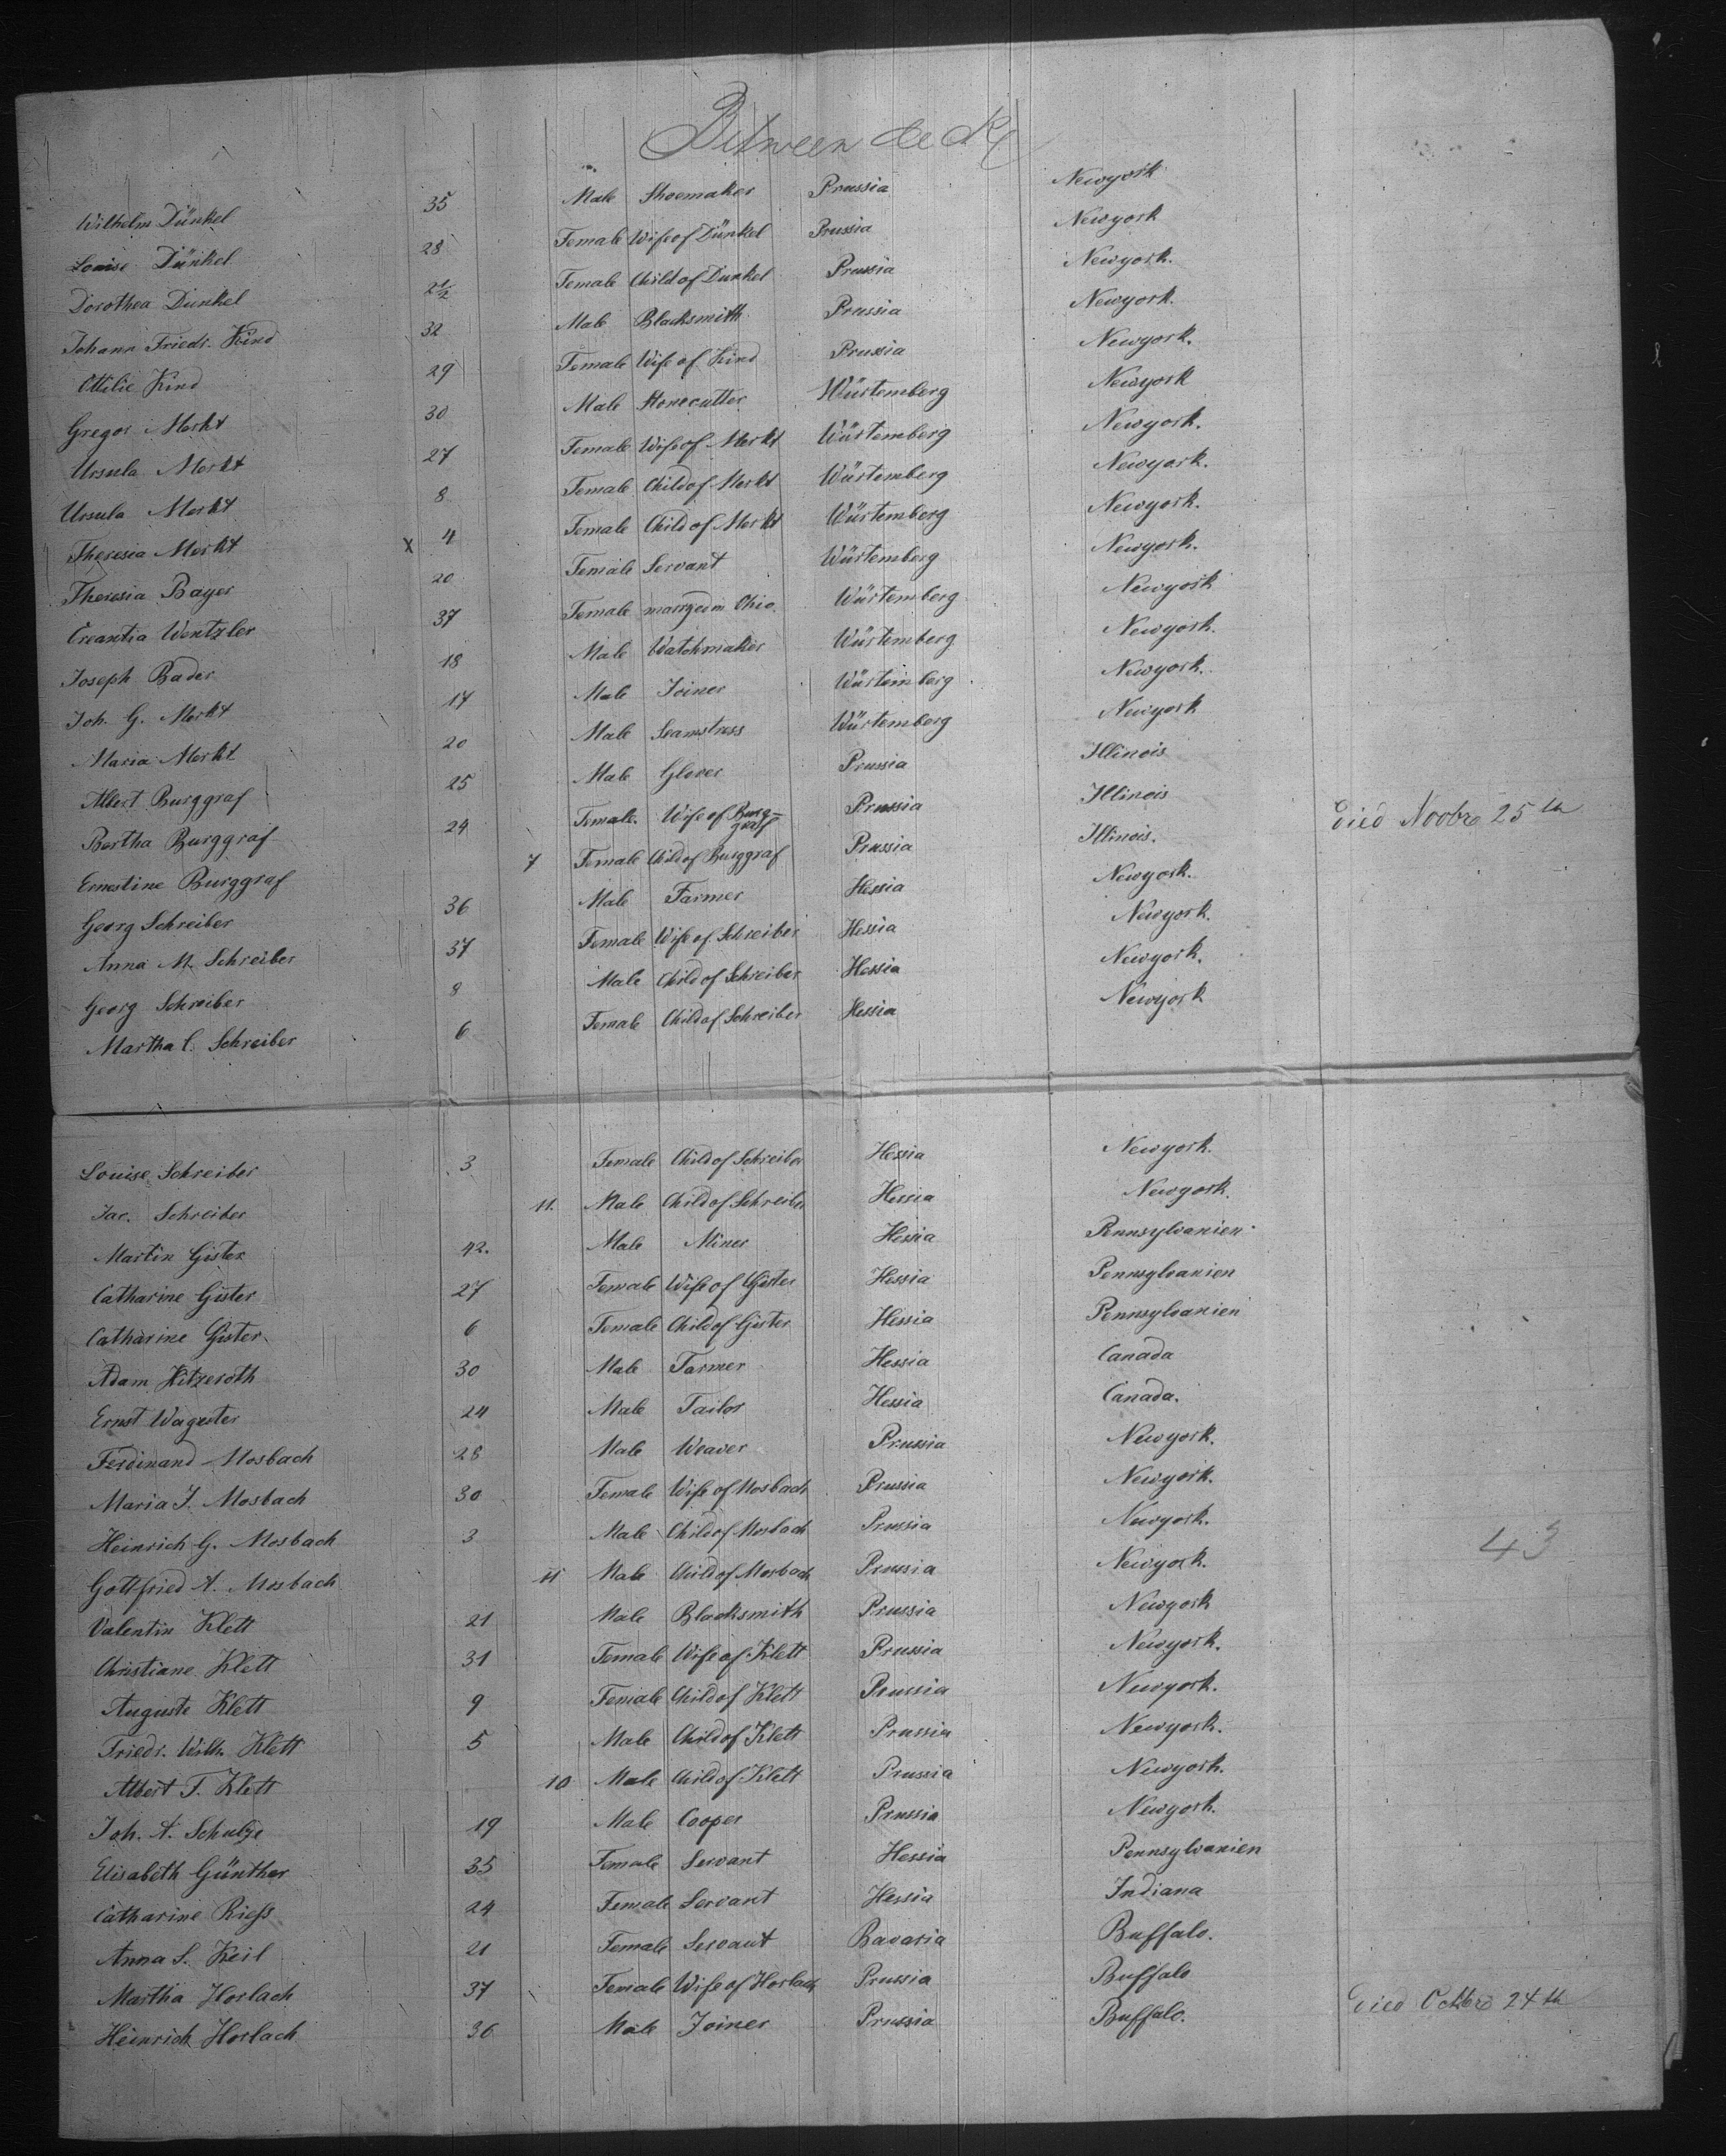 Between deck
Wilhelm Dünkel 35 Male Shoemaker Prussia Newyork
Louise Dünkel 28 Female Wife of Dünkel Prussia Newyork
Dorothea Dunkel 2 1/2 Female Child of Dunkel Prussia Newyork.
Johann Friedr. Kind 32 Male Blacksmith Prussia Newyork.
Ottilie Kind 29 Female Wife of Kind Prussia Newyork.
Gregor Merkt 30 Male Stonecutter Würtemberg Newyork
Ursula Merkt 27 Female Wife of Merkt Würtemberg Newyork.
Ursula Merkt 8 Female Child of Merkt Würtemberg Newyork.
Theresia Merkt x 4 Female Child of Merkt Würtemberg Newyork.
Theresia Bayer 20 Female Servant Würtemberg Newyork.
Creantia Wentzler 37 Female in Ohio. Würtemberg Newyork
Joseph Bader 18 Male Watchmaker Würtemberg Newyork.
Joh. G. Merkt 17 Male Joiner Würtemberg Newyork.
Maria Merkt 20 Male Seamstress Würtemberg Newyork
Albert Burggraf 25 Male Glover Prussia Illinois
Bertha Burggraf 24 Female. Wife of Burg-graf Prussia Illinois
Ernestine Burggraf 7 Female Child of Burggraf Prussia Illinois. died Novbr 25th
Georg Schreiber 36 Male Farmer Hessia Newyork.
Anna M. Schreiber 37 Female Wife of Schreiber Hessia Newyork.
Georg Schreiber 8 Male Child of Schreiber Hessia Newyork.
Martha C. Schreiber 6 Female Child of Schreiber Hessia Newyork
Louise Schreiber 3 Female Child of Schreiber Hessia Newyork.
Jac. Schreiber 11. Male Child of Schreiber Hessia Newyork.
Martin Gister 42. Male Miner Hessia Pennsylvanien
Catharine Gister 27 Female Wife of Gister Hessia Pennsylvanien
Catharine Gister 6 Female Child of Gister Hessia Pennsylvanien
Adam Hitzeroth 30 Male Farmer Hessia Canada
Ernst 24 Male Tailor Hessia Canada.
Ferdinand Mosbach 28 Male Weaver Prussia Newyork.
Maria J. Mosbach 30 Female Wife of Mosbach Prussia Newyork.
Heinrich G. Mosbach 3 Male Child of Mosbach Prussia Newyork.
43
Gottfried A. Mosbach 11 Male Child of Mosbach Prussia Newyork.
Valentin Klett 21 Male Blacksmith Prussia Newyork
Christiane Klett 31 Female Wife of Klett Prussia Newyork.
Auguste Klett 9 Female Child of Klett Prussia Newyork.
Friedr. Wilh. Klett 5 Male Child of Klett Prussia Newyork.
Albert F. Klett 10 Male Child of Klett Prussia Newyork.
Joh. A. Schulze 19 Male Cooper Prussia Newyork.
Elisabeth Günther 35 Female Servant Hessia Pennsylvanien
Catharine Rieß 24 Female Servant Hessia Indiana
Anna S. Keil 21 Female Servant Bavaria Buffalo.
Martha Horlach 37 Female Wife of Horlach Prussia Buffalo
Heinrich Horlach 36 Male Joiner Prussia Buffalo. died Octbr 24th